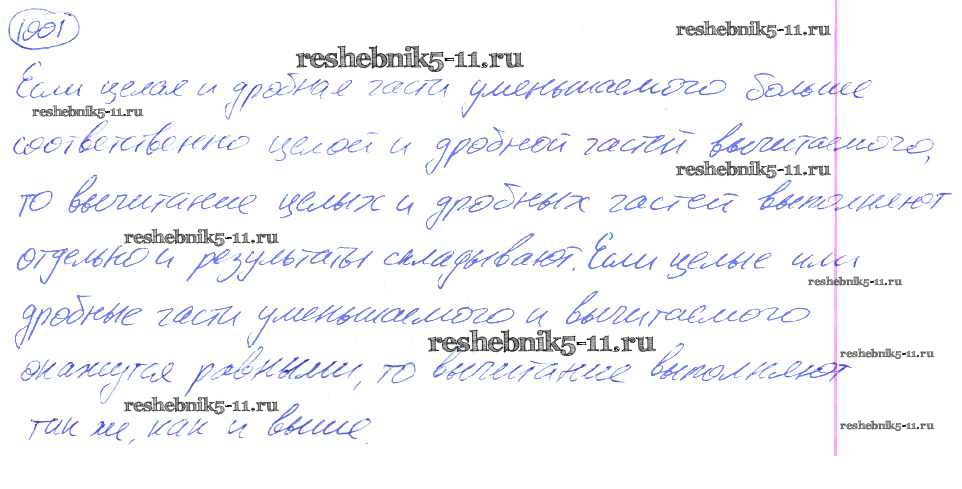 1001
reshebnik5-11.ru
reshebnik5-11.ru
Если целая и дробная части уменьшаемого больше
reshebnik5-11.ru
соответственно целой и дробной частей вычитаемого,
reshebnik5-11.ru
то вычитание целых и дробных частей выполняют
reshebnik5-11.ru
отдельно и результаты складывают. Если целые или
reshebnik5-11.ru
дробные части уменьшаемого и вычитаемого
reshebnik5-11.ru
reshebnik5-11.ru
окажутся равными, то вычитание выполняют
reshebnik5-11.ru
так же, как и выше.
reshebnik5-11.ru